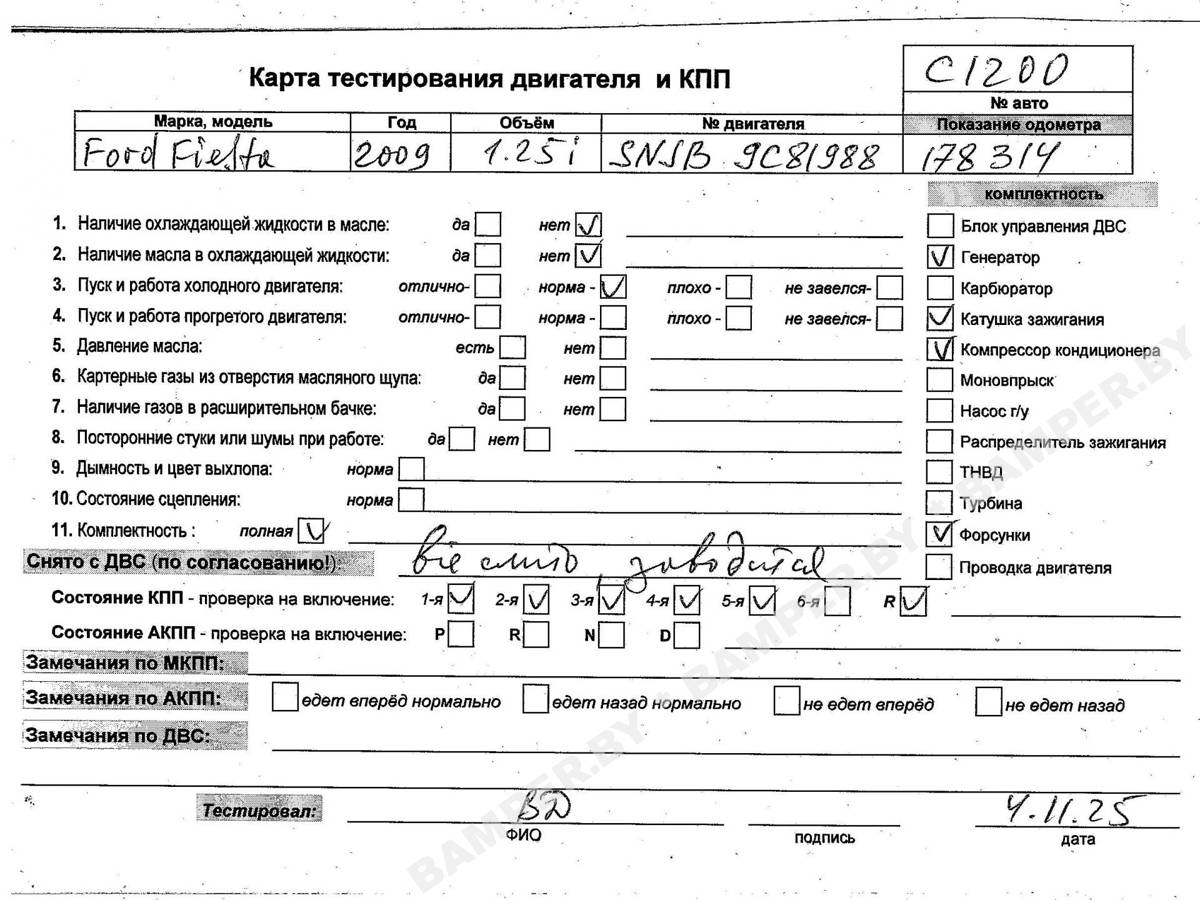 C1200
Карта тестирования двигателя и КПП
№ авто
Марка, модель Год Объём № двигателя Показание одометра
Ford Fiesta 2009 1.25i SNJB 9C81988 178314
комплектность
1. Наличие охлаждающей жидкости в масле: да нет ✓
Блок управления ДВС
2. Наличие масла в охлаждающей жидкости: да нет ✓
✓ Генератор
3. Пуск и работа холодного двигателя: отлично- норма - ✓ плохо - не завелся-
Карбюратор
4. Пуск и работа прогретого двигателя: отлично- норма - плохо - не завелся-
✓ Катушка зажигания
5. Давление масла: есть нет
✓ Компрессор кондиционера
6. Картерные газы из отверстия масляного щупа: да нет
Моновпрыск
7. Наличие газов в расширительном бачке: да нет
Насос г/у
8. Посторонние стуки или шумы при работе: да нет
Распределитель зажигания
9. Дымность и цвет выхлопа: норма
ТНВД
10. Состояние сцепления: норма
Турбина
11. Комплектность : полная ✓
✓ Форсунки
Снято с ДВС (по согласованию!): заводится
Проводка двигателя
Состояние КПП - проверка на включение: 1-я ✓ 2-я ✓ 3-я ✓ 4-я ✓ 5-я ✓ 6-я R ✓
Состояние АКПП - проверка на включение: P R N D
Замечания по МКПП:
Замечания по АКПП: едет вперёд нормально едет назад нормально не едет вперёд не едет назад
Замечания по ДВС:
Тестировал: ВД 4.11.25
ФИО подпись дата
BAMPER.BY • BAMPER.BY • BAMPER.BY • BAMPER.BY